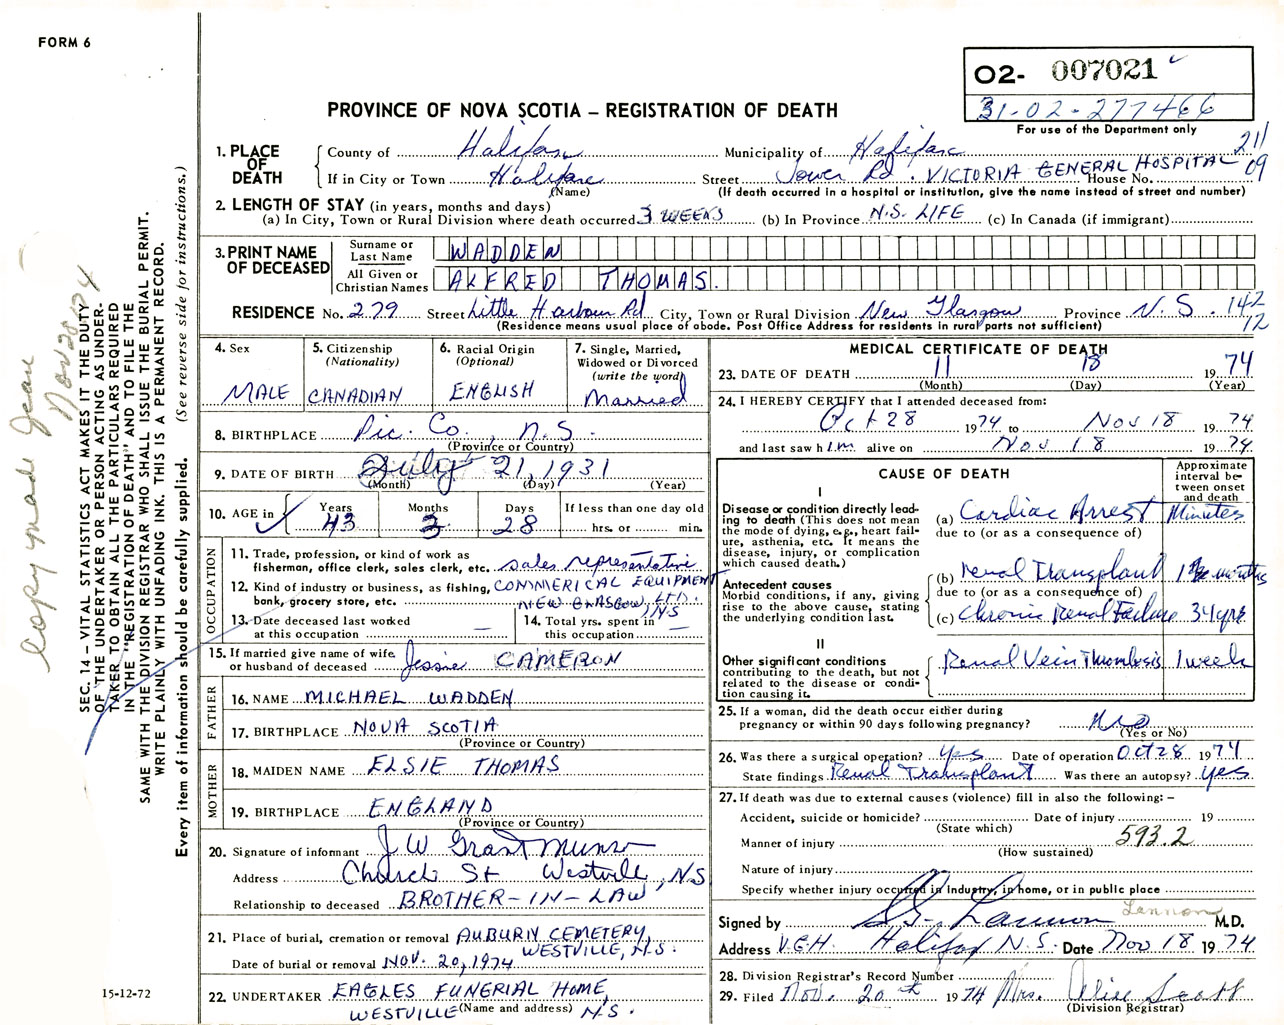 FORM 6
O2- 007021
31-02-277466
For use of the Department only
PROVINCE OF NOVA SCOTIA – REGISTRATION OF DEATH
1. PLACE OF DEATH
County of Halifax Municipality of Halifax 211
If in City or Town Halifax Street Tower Rd. VICTORIA GENERAL HOSPITAL House No. 09
(Name) (If death occurred in a hospital or institution, give the name instead of street and number)
2. LENGTH OF STAY (in years, months and days)
(a) In City, Town or Rural Division where death occurred 3 WEEKS (b) In Province N.S. LIFE (c) In Canada (if immigrant)
3. PRINT NAME OF DECEASED
Surname or Last Name WADDEN
All Given or Christian Names ALFRED THOMAS.
RESIDENCE No. 279 Street Little Harbour Rd City, Town or Rural Division New Glasgow Province N.S. 142
12
(Residence means usual place of abode. Post Office Address for residents in rural parts not sufficient)
4. Sex
MALE
5. Citizenship
(Nationality)
CANADIAN
6. Racial Origin
(Optional)
ENGLISH
7. Single, Married,
Widowed or Divorced
(write the word)
Married
8. BIRTHPLACE Pic. Co., N.S.
(Province or Country)
9. DATE OF BIRTH July 21, 1931
(Month) (Day) (Year)
10. AGE in Years Months Days If less than one day old
43 3 28 hrs. or min.
OCCUPATION
11. Trade, profession, or kind of work as
fisherman, office clerk, sales clerk, etc. sales representative
12. Kind of industry or business, as fishing, COMMERICAL EQUIPMENT
bank, grocery store, etc. LTD.
NEW GLASGOW, NS
13. Date deceased last worked
at this occupation —
14. Total yrs. spent in
this occupation —
15. If married give name of wife
or husband of deceased Jessie CAMERON
FATHER
16. NAME MICHAEL WADDEN
17. BIRTHPLACE NOVA SCOTIA
(Province or Country)
MOTHER
18. MAIDEN NAME ELSIE THOMAS
19. BIRTHPLACE ENGLAND
(Province or Country)
20. Signature of informant J W Grant Munro
Address Church St Westville, N.S
Relationship to deceased BROTHER-IN-LAW
21. Place of burial, cremation or removal AUBURN CEMETERY
WESTVILLE, N.S.
Date of burial or removal NOV. 20, 1974
22. UNDERTAKER EAGLES FUNERIAL HOME,
(Name and address)
WESTVILLE N.S.
MEDICAL CERTIFICATE OF DEATH
23. DATE OF DEATH 11 18 1974
(Month) (Day) (Year)
24. I HEREBY CERTIFY that I attended deceased from:
Oct 28 1974 to Nov 18 1974
and last saw him alive on Nov 18 1974
CAUSE OF DEATH
Approximate
interval be-
tween onset
and death
I
Disease or condition directly lead-
ing to death (This does not mean
the mode of dying, e.g., heart fail-
ure, asthenia, etc. It means the
disease, injury, or complication
which caused death.)
(a) Cardiac Arrest Minutes
due to (or as a consequence of)
Antecedent causes
Morbid conditions, if any, giving
rise to the above cause, stating
the underlying condition last.
(b) Renal Transplant months
due to (or as a consequence of)
(c) Chronic Renal Failure 34 yrs
II
Other significant conditions
contributing to the death, but not
related to the disease or condi-
tion causing it.
Renal Vein Thrombosis 1 week
25. If a woman, did the death occur either during
pregnancy or within 90 days following pregnancy? No
(Yes or No)
26. Was there a surgical operation? yes Date of operation Oct 28 1974
State findings Renal Transplant Was there an autopsy? yes
27. If death was due to external causes (violence) fill in also the following: –
Accident, suicide or homicide? Date of injury 19
(State which)
Manner of injury 593.2
(How sustained)
Nature of injury
Specify whether injury occurred in industry, in home, or in public place
Signed by Lannon Lannon M.D.
Address V.G.H. Halifax N.S. Date Nov 18 1974
28. Division Registrar's Record Number
29. Filed Nov. 20th 1974 Mrs. Alice Scott
(Division Registrar)
SEC. 14 – VITAL STATISTICS ACT MAKES IT THE DUTY
OF THE UNDERTAKER OR PERSON ACTING AS UNDER-
TAKER TO OBTAIN ALL THE PARTICULARS REQUIRED
IN THE "REGISTRATION OF DEATH" AND TO FILE THE
SAME WITH THE DIVISION REGISTRAR WHO SHALL ISSUE THE BURIAL PERMIT.
WRITE PLAINLY WITH UNFADING INK. THIS IS A PERMANENT RECORD.
Every item of information should be carefully supplied. (See reverse side for instructions.)
Copy made Jean –
Nov 28/74
15-12-72